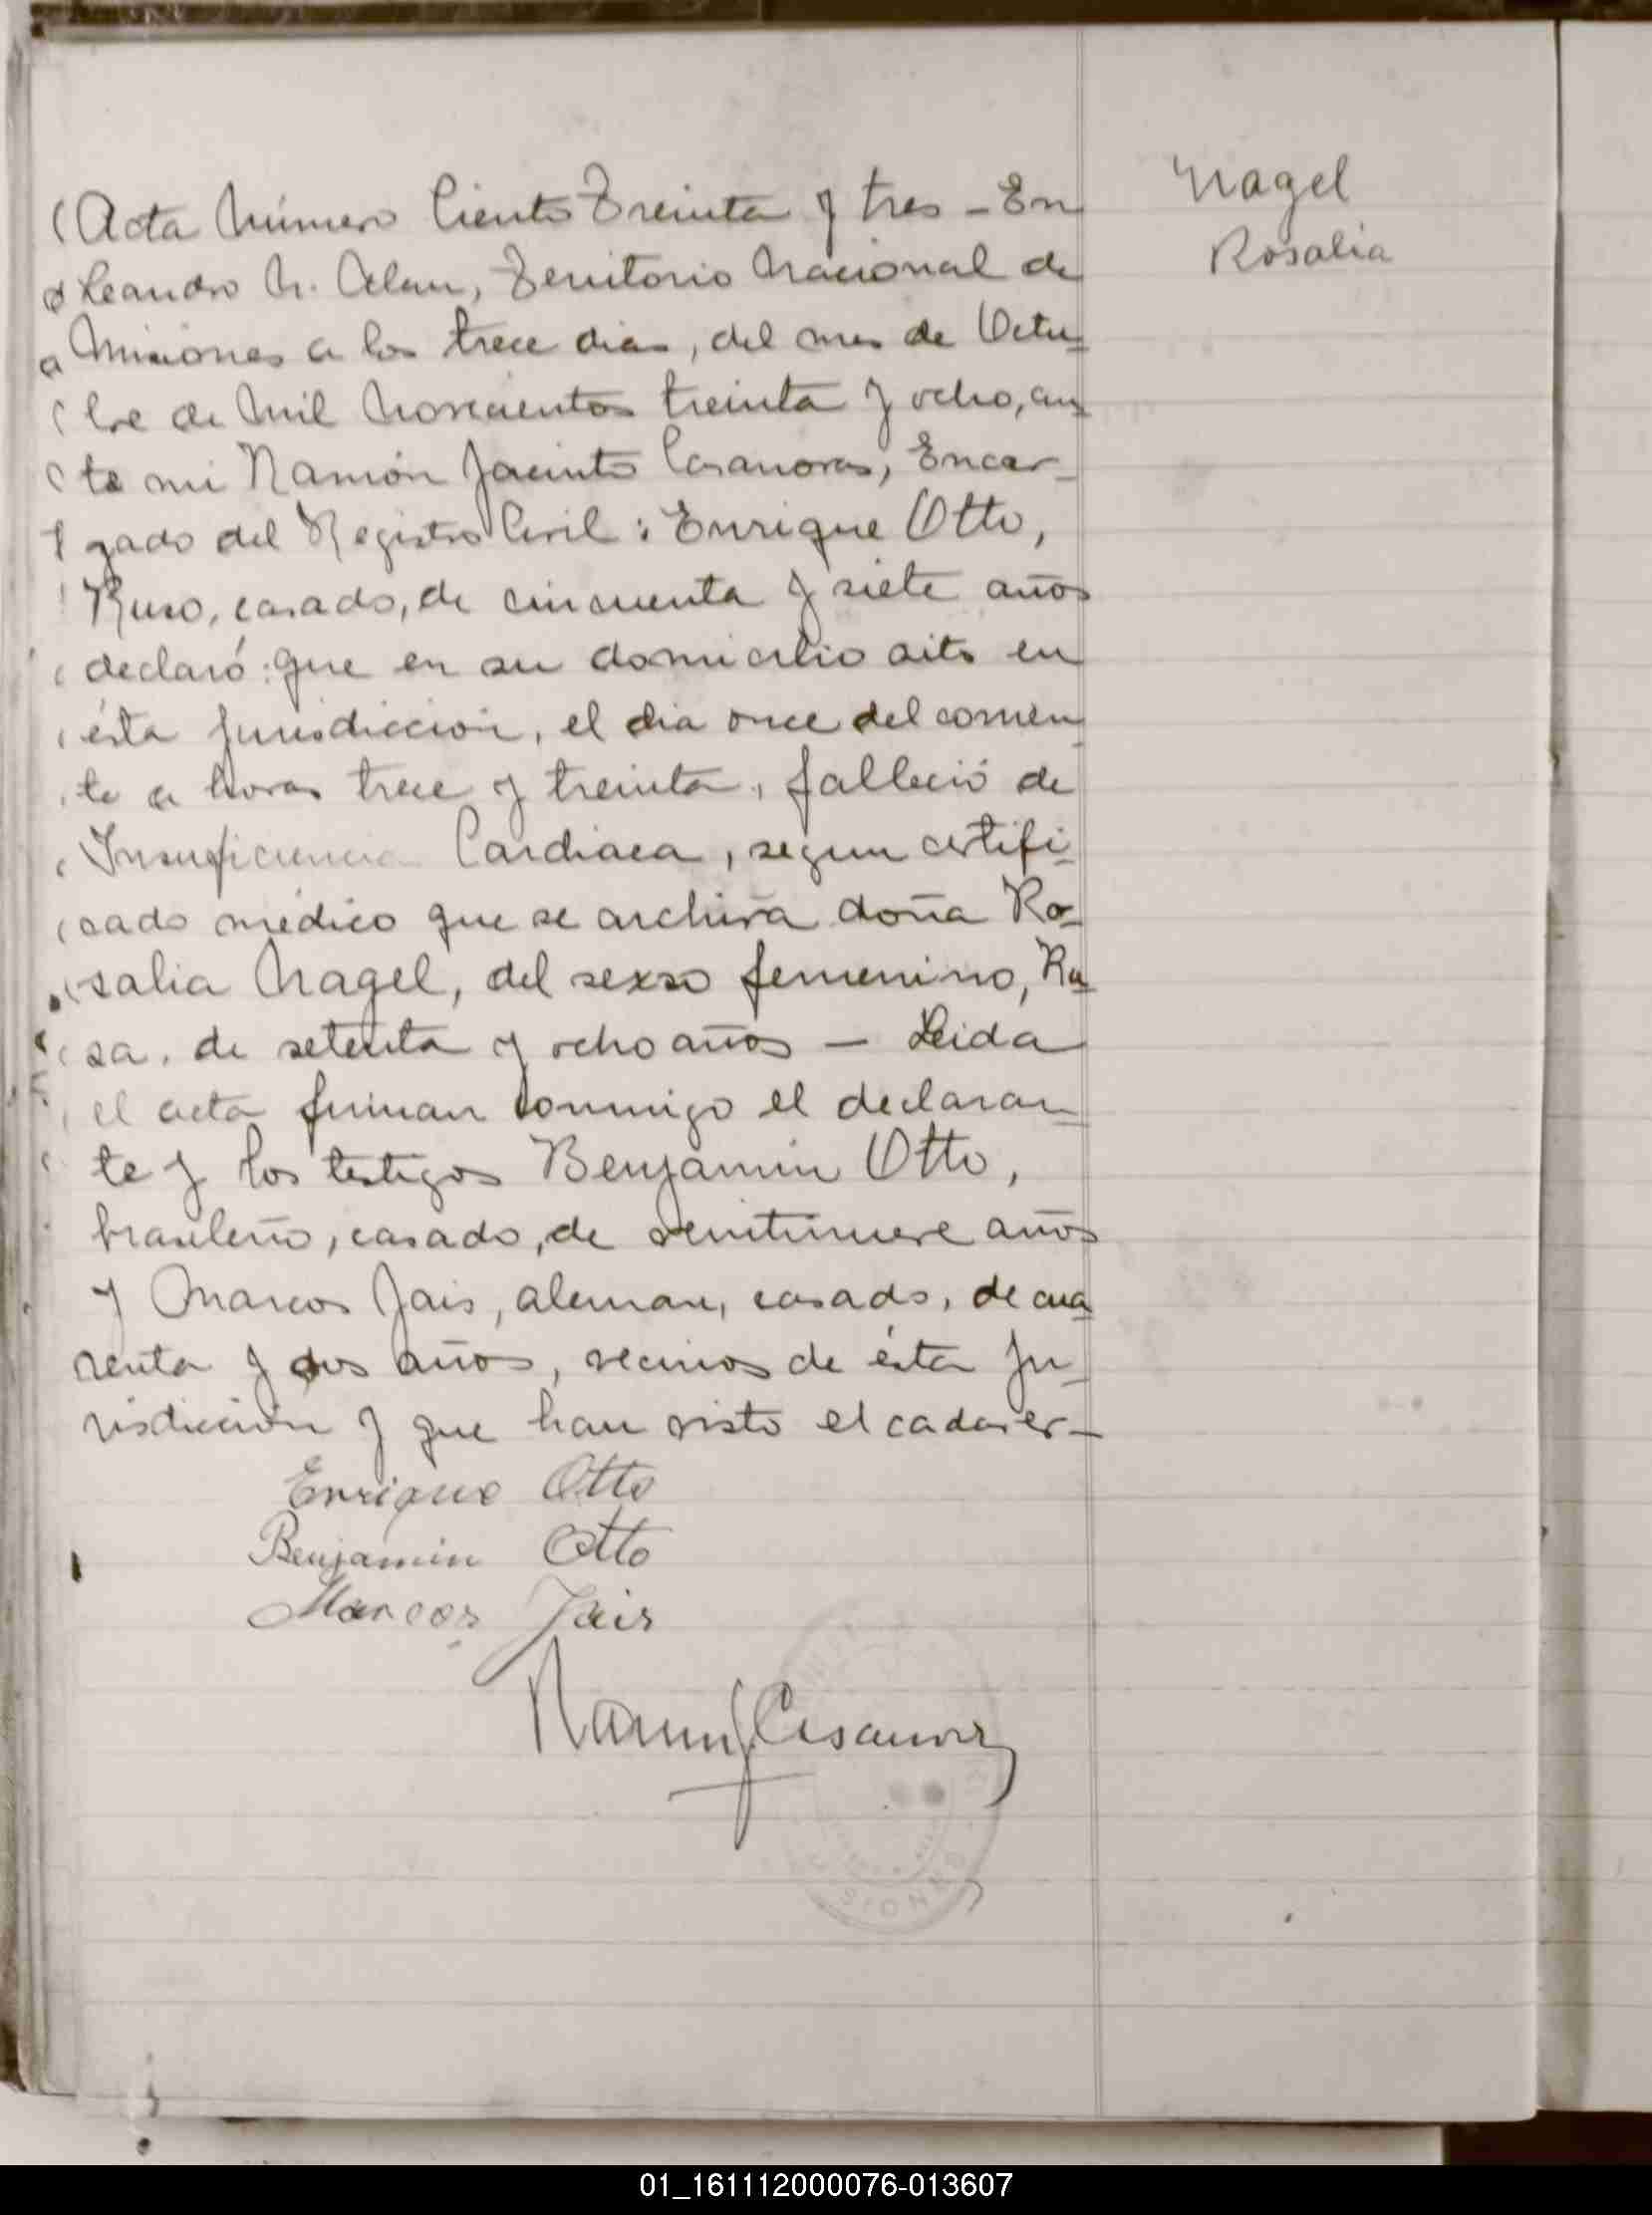 Nagel
Rosalia
Acta Número Ciento Treinta y tres - En
Leandro N. Alem, Territorio Nacional de
Misiones a los trece dias, del mes de Octu-
bre de Mil Novecientos treinta y ocho, an-
te mi Ramón Jacinto Casanovas, Encar-
gado del Registro Civil: Enrique Otto,
Ruso, casado, de cincuenta y siete años
declaró: que en su domicilio sito en
ésta jurisdiccion, el dia once del corrien-
te a horas trece y treinta, falleció de
Insuficiencia Cardiaca, segun certifi-
cado médico que se archiva doña Ro-
salia Nagel, del sexso femenino, Ru-
sa, de setenta y ocho años - Leida
el acta firman conmigo el declaran-
te y los testigos Benjamin Otto,
brasileño, casado, de veintinueve años
y Marcos Jais, aleman, casado, de cua-
renta y dos años, vecinos de ésta Ju-
risdiccion y que han visto el cadaver-
Enrique Otto
Benjamin Otto
Marcos Jais
Ramón J. Casanovas
SIONES
01_161112000076-013607